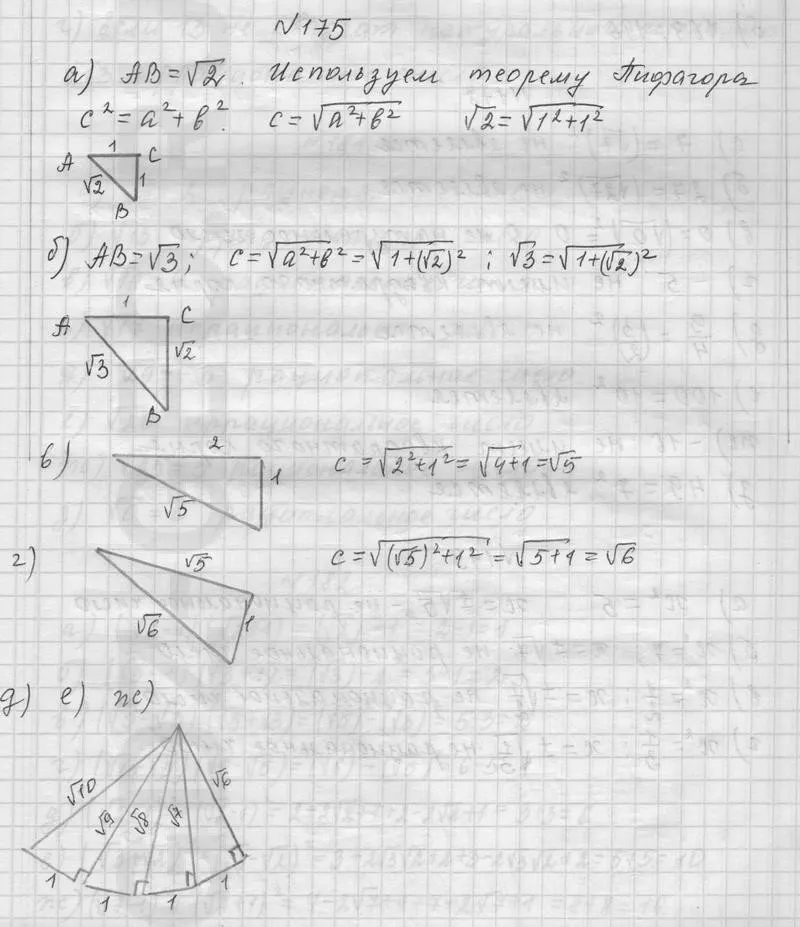 №175
а) AB=√2. Используем теорему Пифагора
c²=a²+b². c=√(a²+b²) √2=√(1²+1²)
1
A C
√2 1
B
б) AB=√3; c=√(a²+b²)=√(1+(√2)²); √3=√(1+(√2)²)
1
A C
√3 √2
B
в) 2 c=√(2²+1²)=√(4+1)=√5
1
√5
г) √5 c=√((√5)²+1²)=√(5+1)=√6
√6 1
д) е) ж)
√10 √9 √8 √7 √6
1 1 1 1